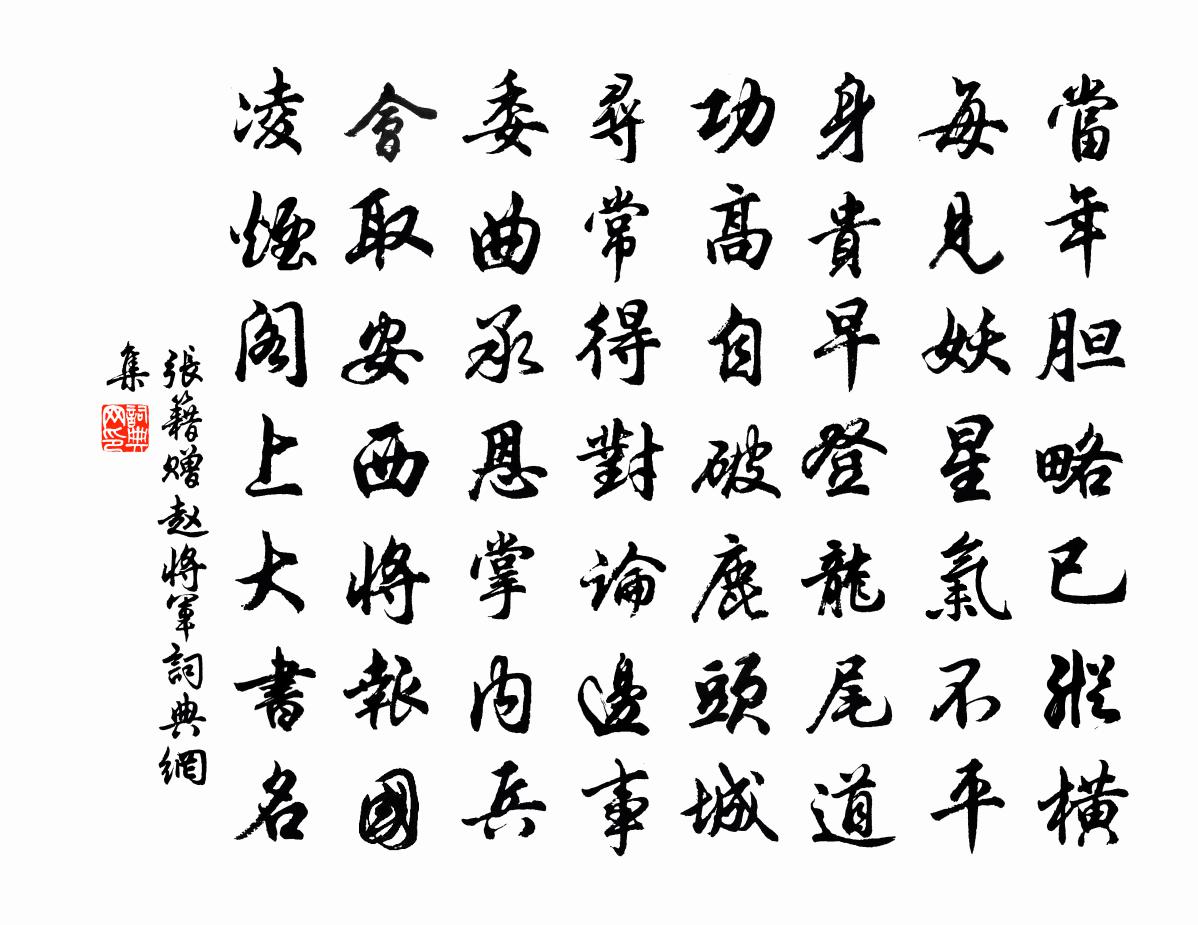 當年胆略已縱橫
每見妖星氣不平
身貴早登龍尾道
功高自破鹿頭城
尋常得對論邊事
委曲承恩掌内兵
會取安西將報國
凌煙閣上大書名
張籍贈赵將軍詞典網
集
詞典网印